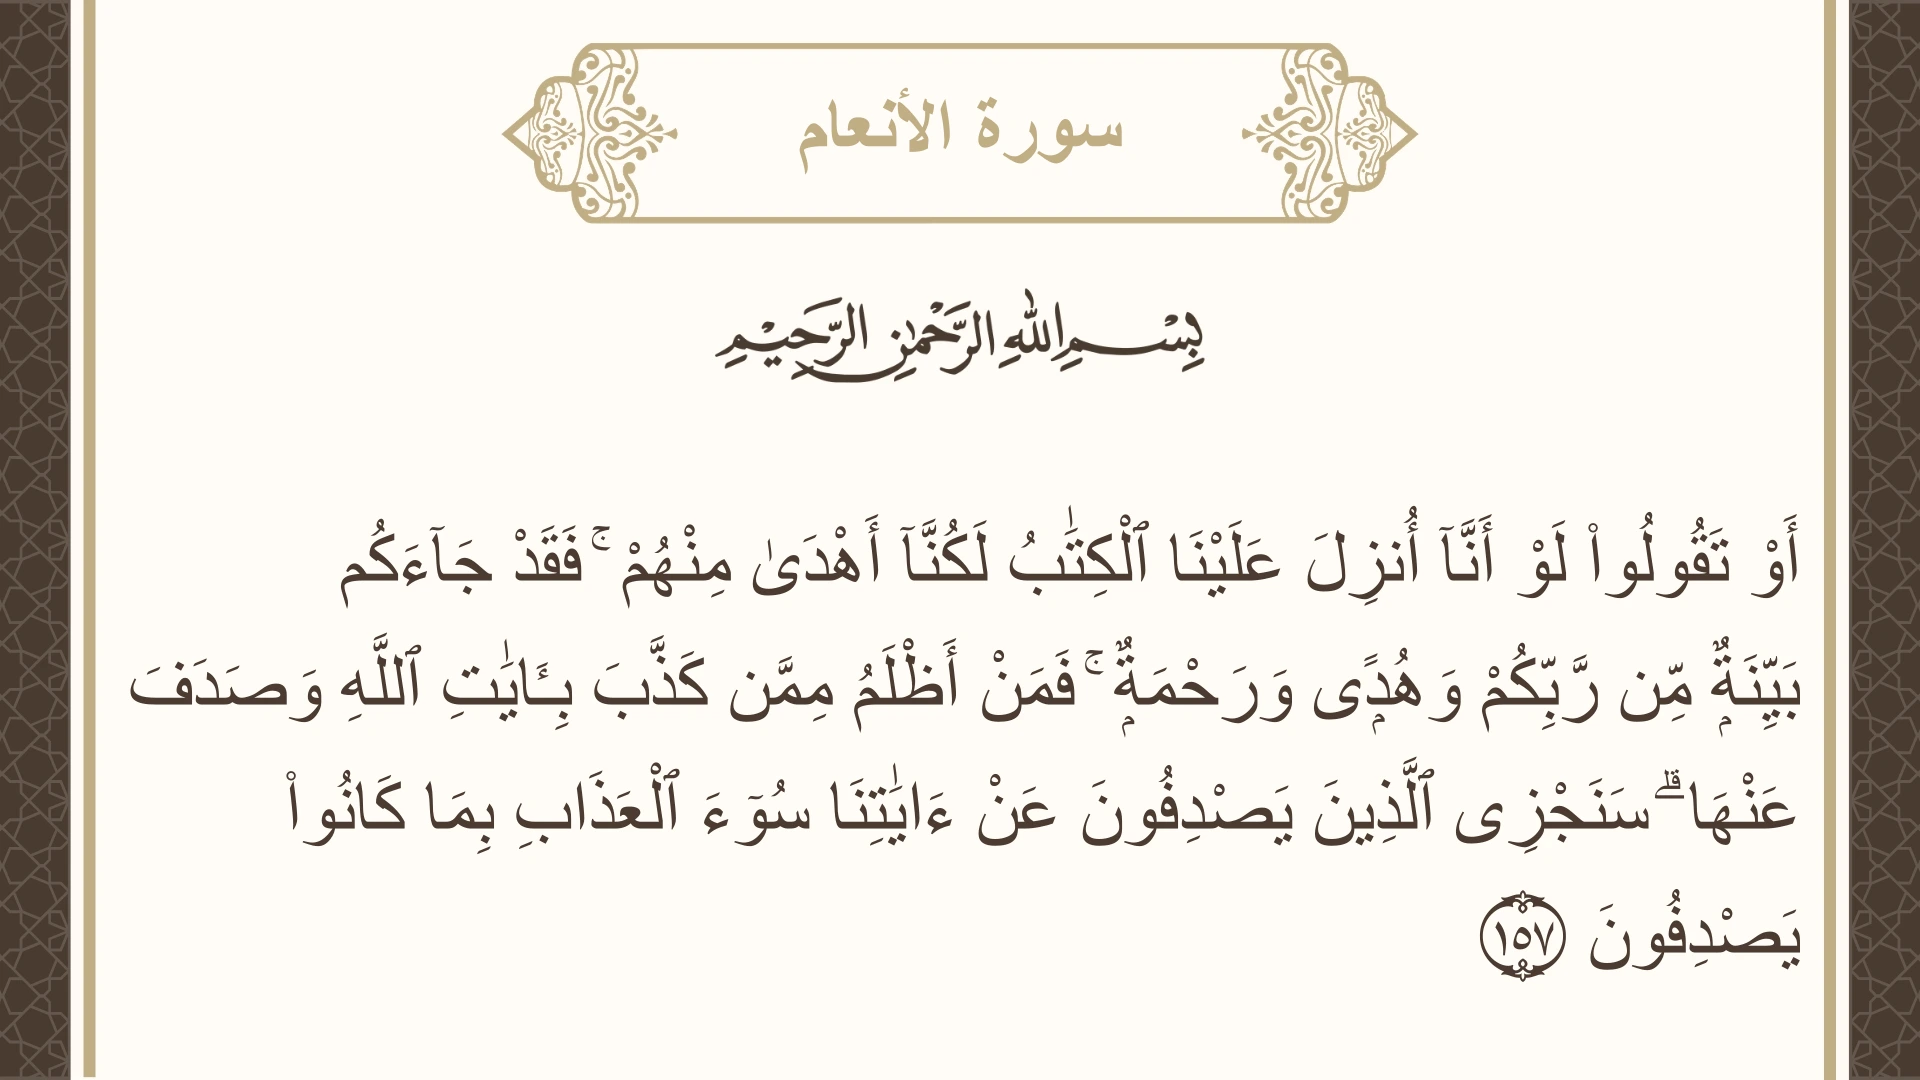 سورة الأنعام
بِسْمِ اللهِ الرَّحْمٰنِ الرَّحِيْمِ
أَوْ تَقُولُوا۟ لَوْ أَنَّآ أُنزِلَ عَلَيْنَا ٱلْكِتَٰبُ لَكُنَّآ أَهْدَىٰ مِنْهُمْ ۚ فَقَدْ جَآءَكُم
بَيِّنَةٌۭ مِّن رَّبِّكُمْ وَهُدًۭى وَرَحْمَةٌۭ ۚ فَمَنْ أَظْلَمُ مِمَّن كَذَّبَ بِـَٔايَٰتِ ٱللَّهِ وَصَدَفَ
عَنْهَا ۗ سَنَجْزِى ٱلَّذِينَ يَصْدِفُونَ عَنْ ءَايَٰتِنَا سُوٓءَ ٱلْعَذَابِ بِمَا كَانُوا۟
يَصْدِفُونَ ١٥٧